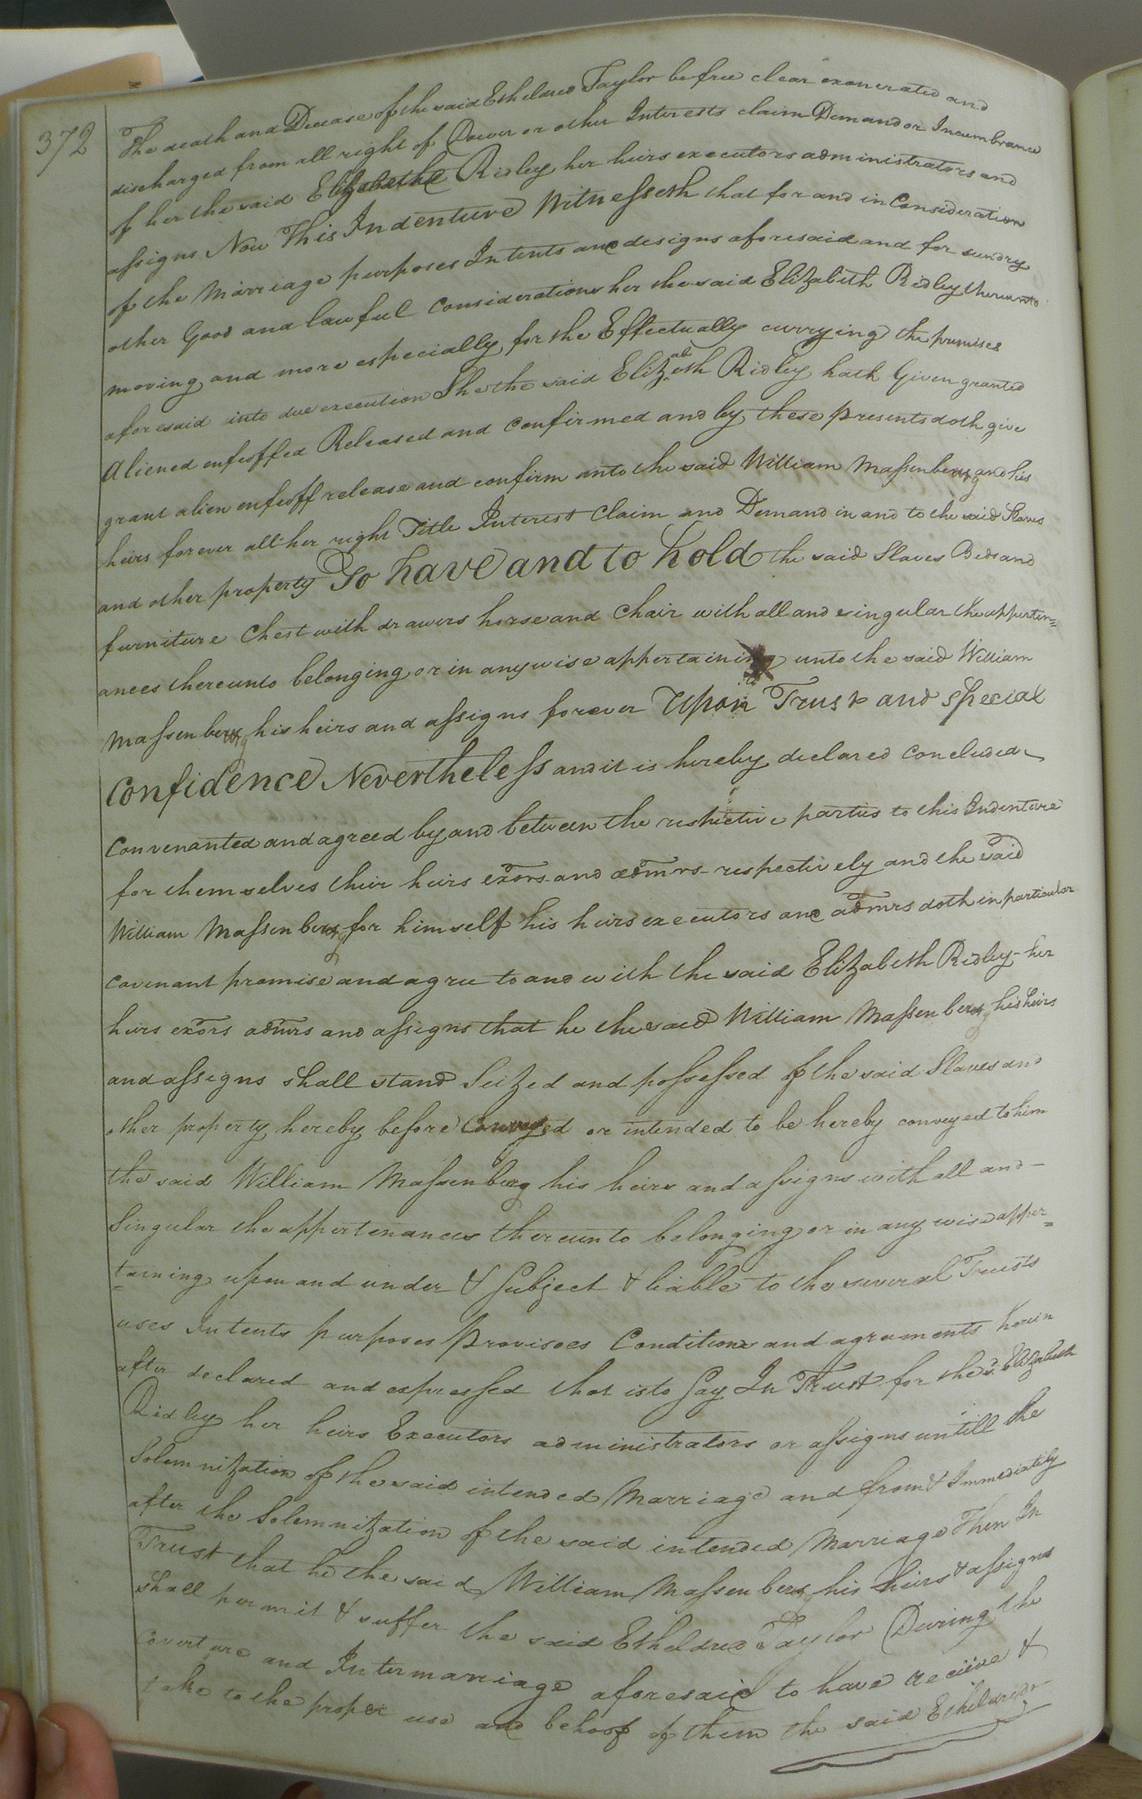 372
The death and Decease of the said Etheldred Taylor be free clear exonerated and
discharged from all right of Dower or other Interests claim Demand or Incumbrance
of her the said Elizabeth Ridley her heirs executors administrators and
assigns Now This Indenture Witnesseth that for and in Consideration
of the Marriage purposes Intents and designs aforesaid and for sundry
other Good and lawful Considerations her the said Elizabeth Ridley thereunto
moving and more especially for the Effectually carrying the premises
aforesaid into due execution She the said Elizabeth Ridley hath Given granted
Aliened enfeoffed Released and confirmed and by these presents doth give
grant alien enfeoff release and confirm unto the said William Massenberg and his
heirs forever all her right Title Interest Claim and Demand in and to the said Slaves
and other property To have and to hold the said Slaves Beds and
furniture Chest with drawers horse and Chair with all and singular the apperten=
ances thereunto belonging or in anywise appertaining unto the said William
Massenberg his heirs and assigns forever Upon Trust and Special
Confidence Nevertheless and it is hereby declared concluded
Convenanted and agreed by and between the respective parties to this Indenture
for themselves their heirs exors and admrs respectively and the said
William Massenberg for himself his heirs executors and admrs doth in particular
covenant promise and agree to and with the said Elizabeth Ridley - her
heirs exors admrs and assigns that he the said William Massenberg his heirs
and assigns shall stand Seized and possessed of the said Slaves and
other property hereby before Conveyed or intended to be hereby conveyed to him
the said William Massenberg his heirs and assigns with all and -
Singular the appertenances thereunto belonging or in any wise apper=
=taining upon and under & Subject & liable to the several Trusts
uses Intents purposes Provisoes Conditions and agreements herein
after declared and expressed that is to Say In Trust for the sd. Elizabeth
Ridley her heirs Executors administrators or assigns untill the
Solemnization of the said intended Marriage and from & Immediately
after the Solemnization of the said intended Marriage Then In
Trust that he the said William Massenberg his heirs & assigns
shall permit & suffer the said Etheldred Taylor During the
coverture and Intermarriage aforesaid to have receive &
take to the proper use and behoof of them the said Etheldred